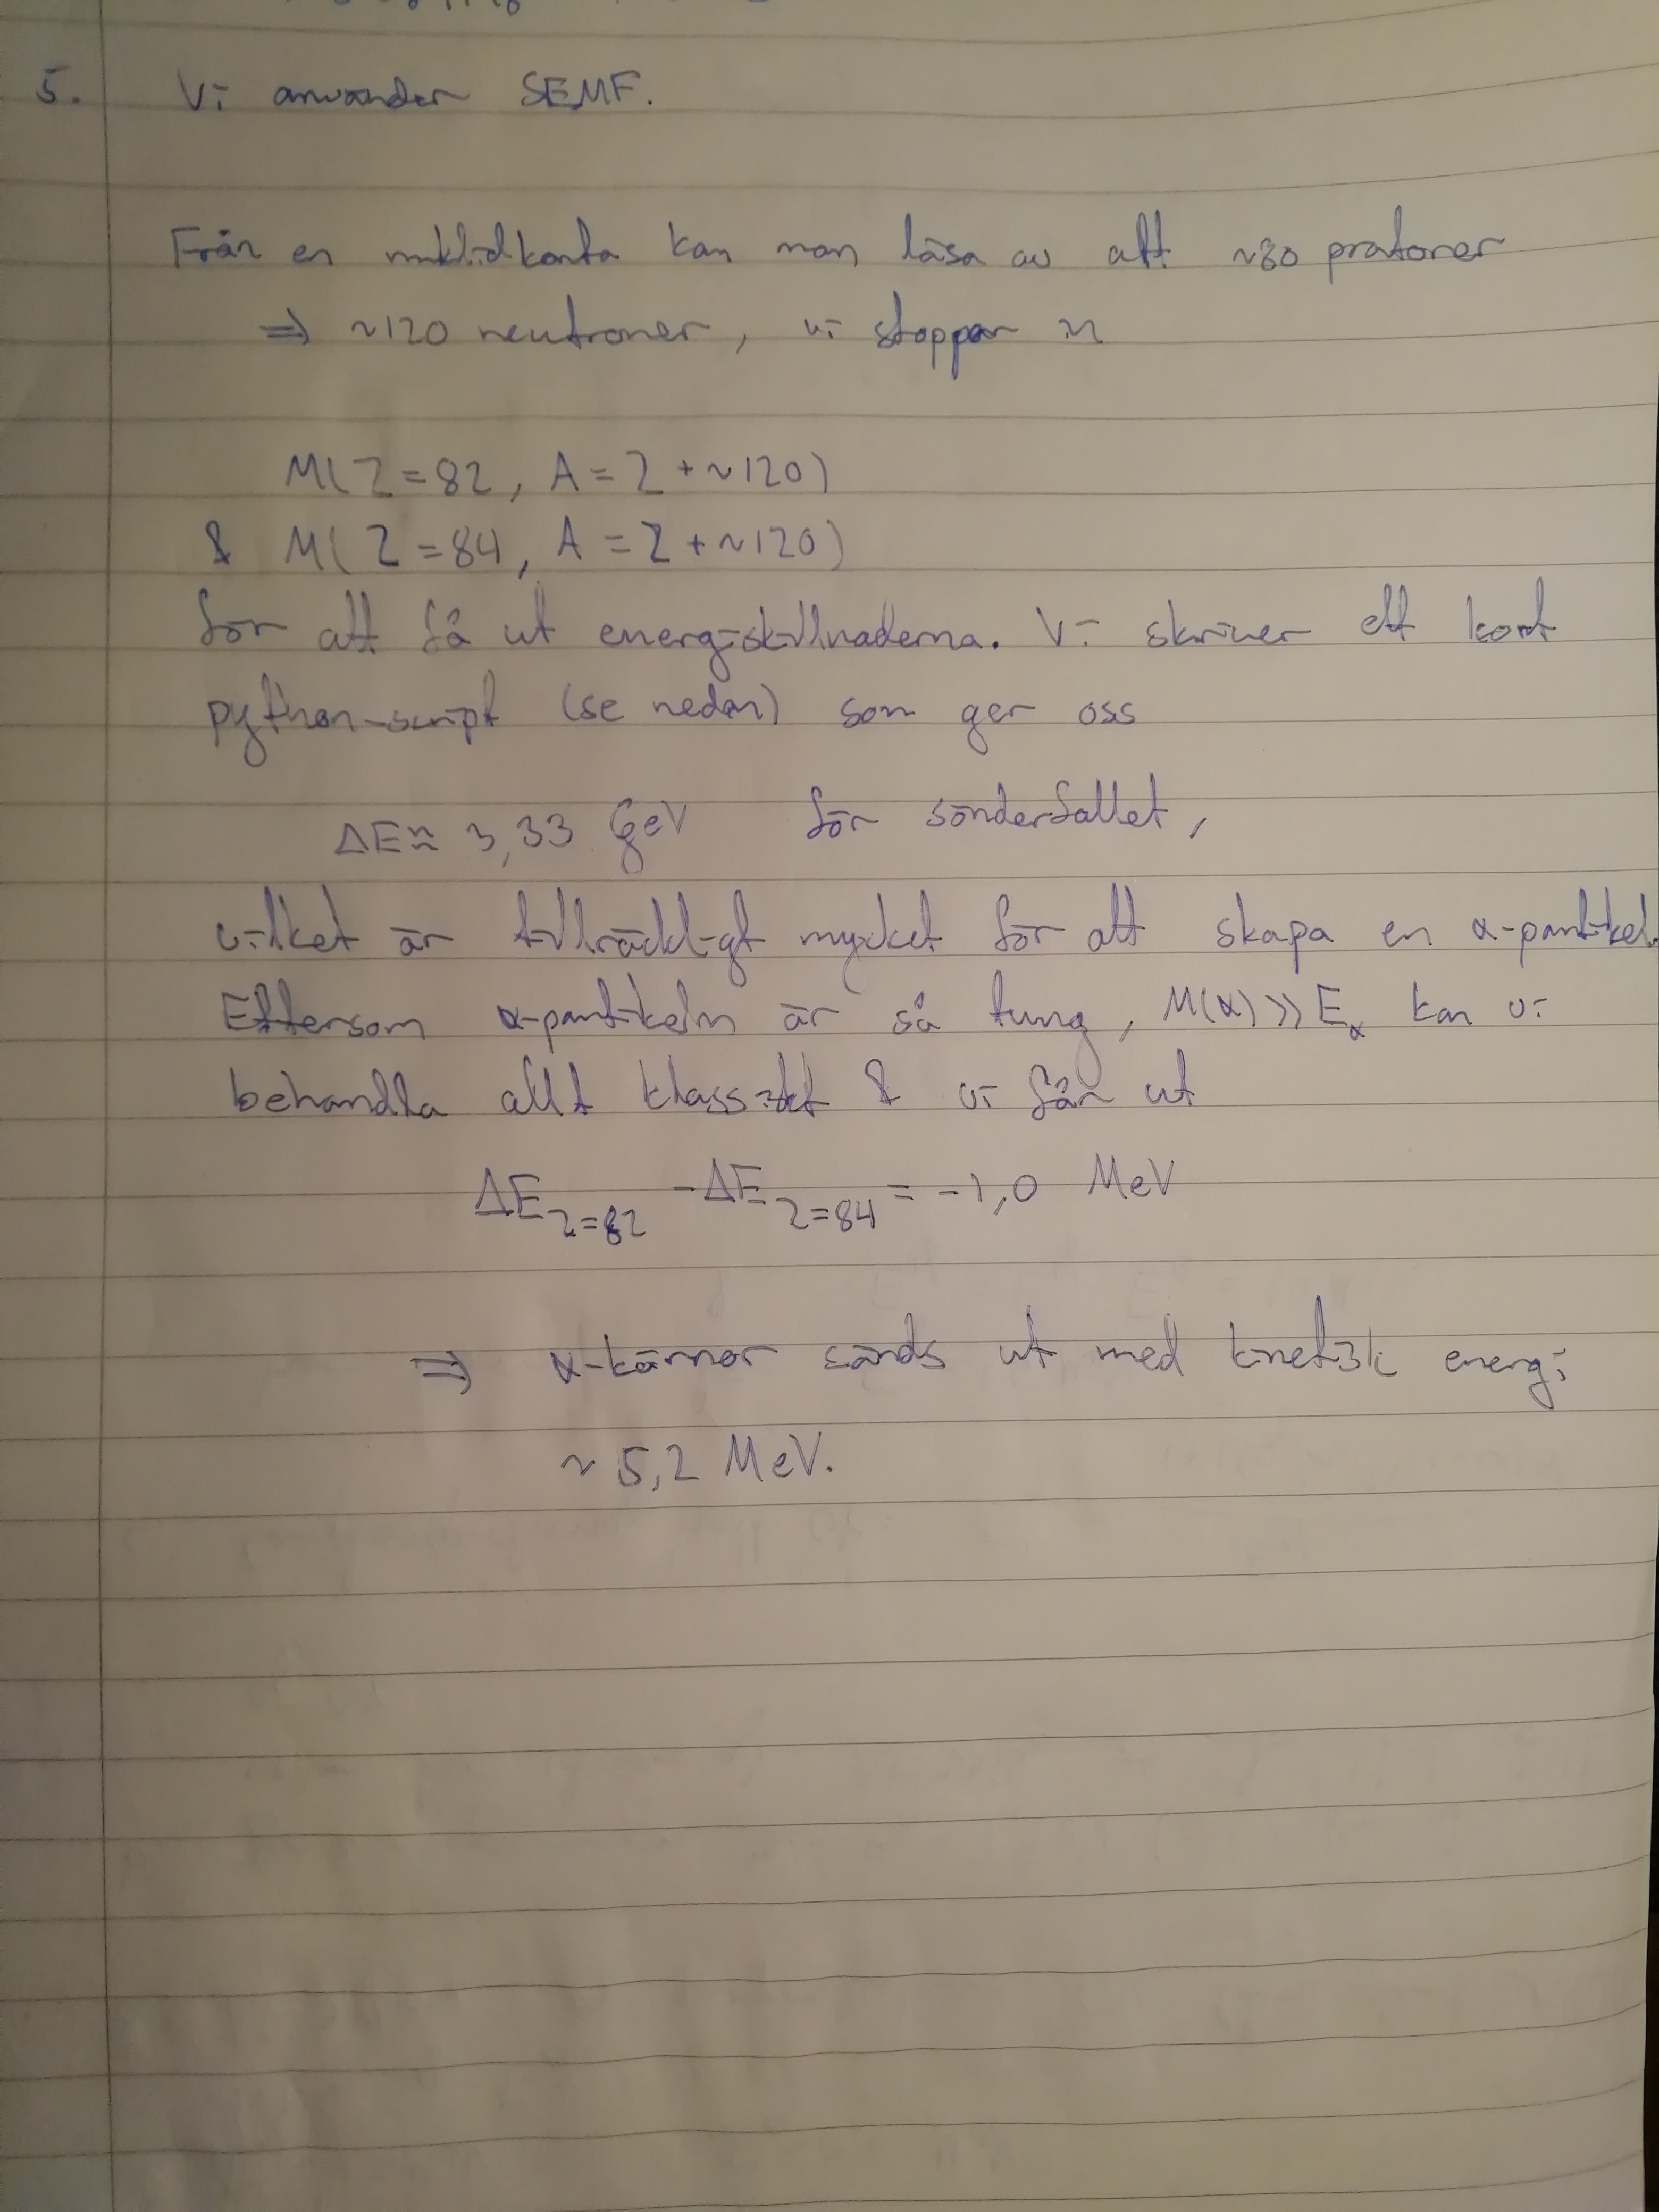 5. Vi använder SEMF.
Från en nuklidkarta kan man läsa av att ~80 protoner
⇒ ~120 neutroner, vi stoppar in
M(Z=82, A=Z+~120)
& M(Z=84, A=Z+~120)
för att få ut energiskillnaderna. Vi skriver ett kort
python-script (se nedan) som ger oss
ΔE≈ 3,33 GeV för sönderfallet,
vilket är tillräckligt mycket för att skapa en α-partikel.
Eftersom α-partikeln är så tung, M(α)>>Eα kan vi
behandla allt klassiskt & vi får ut
ΔE Z=82 -ΔE Z=84 = -1,0 MeV
⇒ α-kärnor sänds ut med kinetisk energi
~ 5,2 MeV.